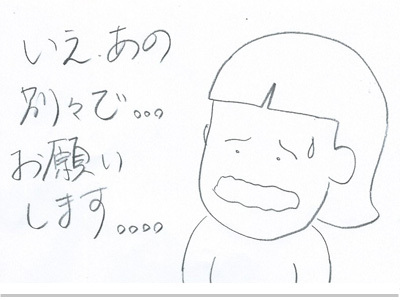 いえ、あの
別々で...
お願い
します....